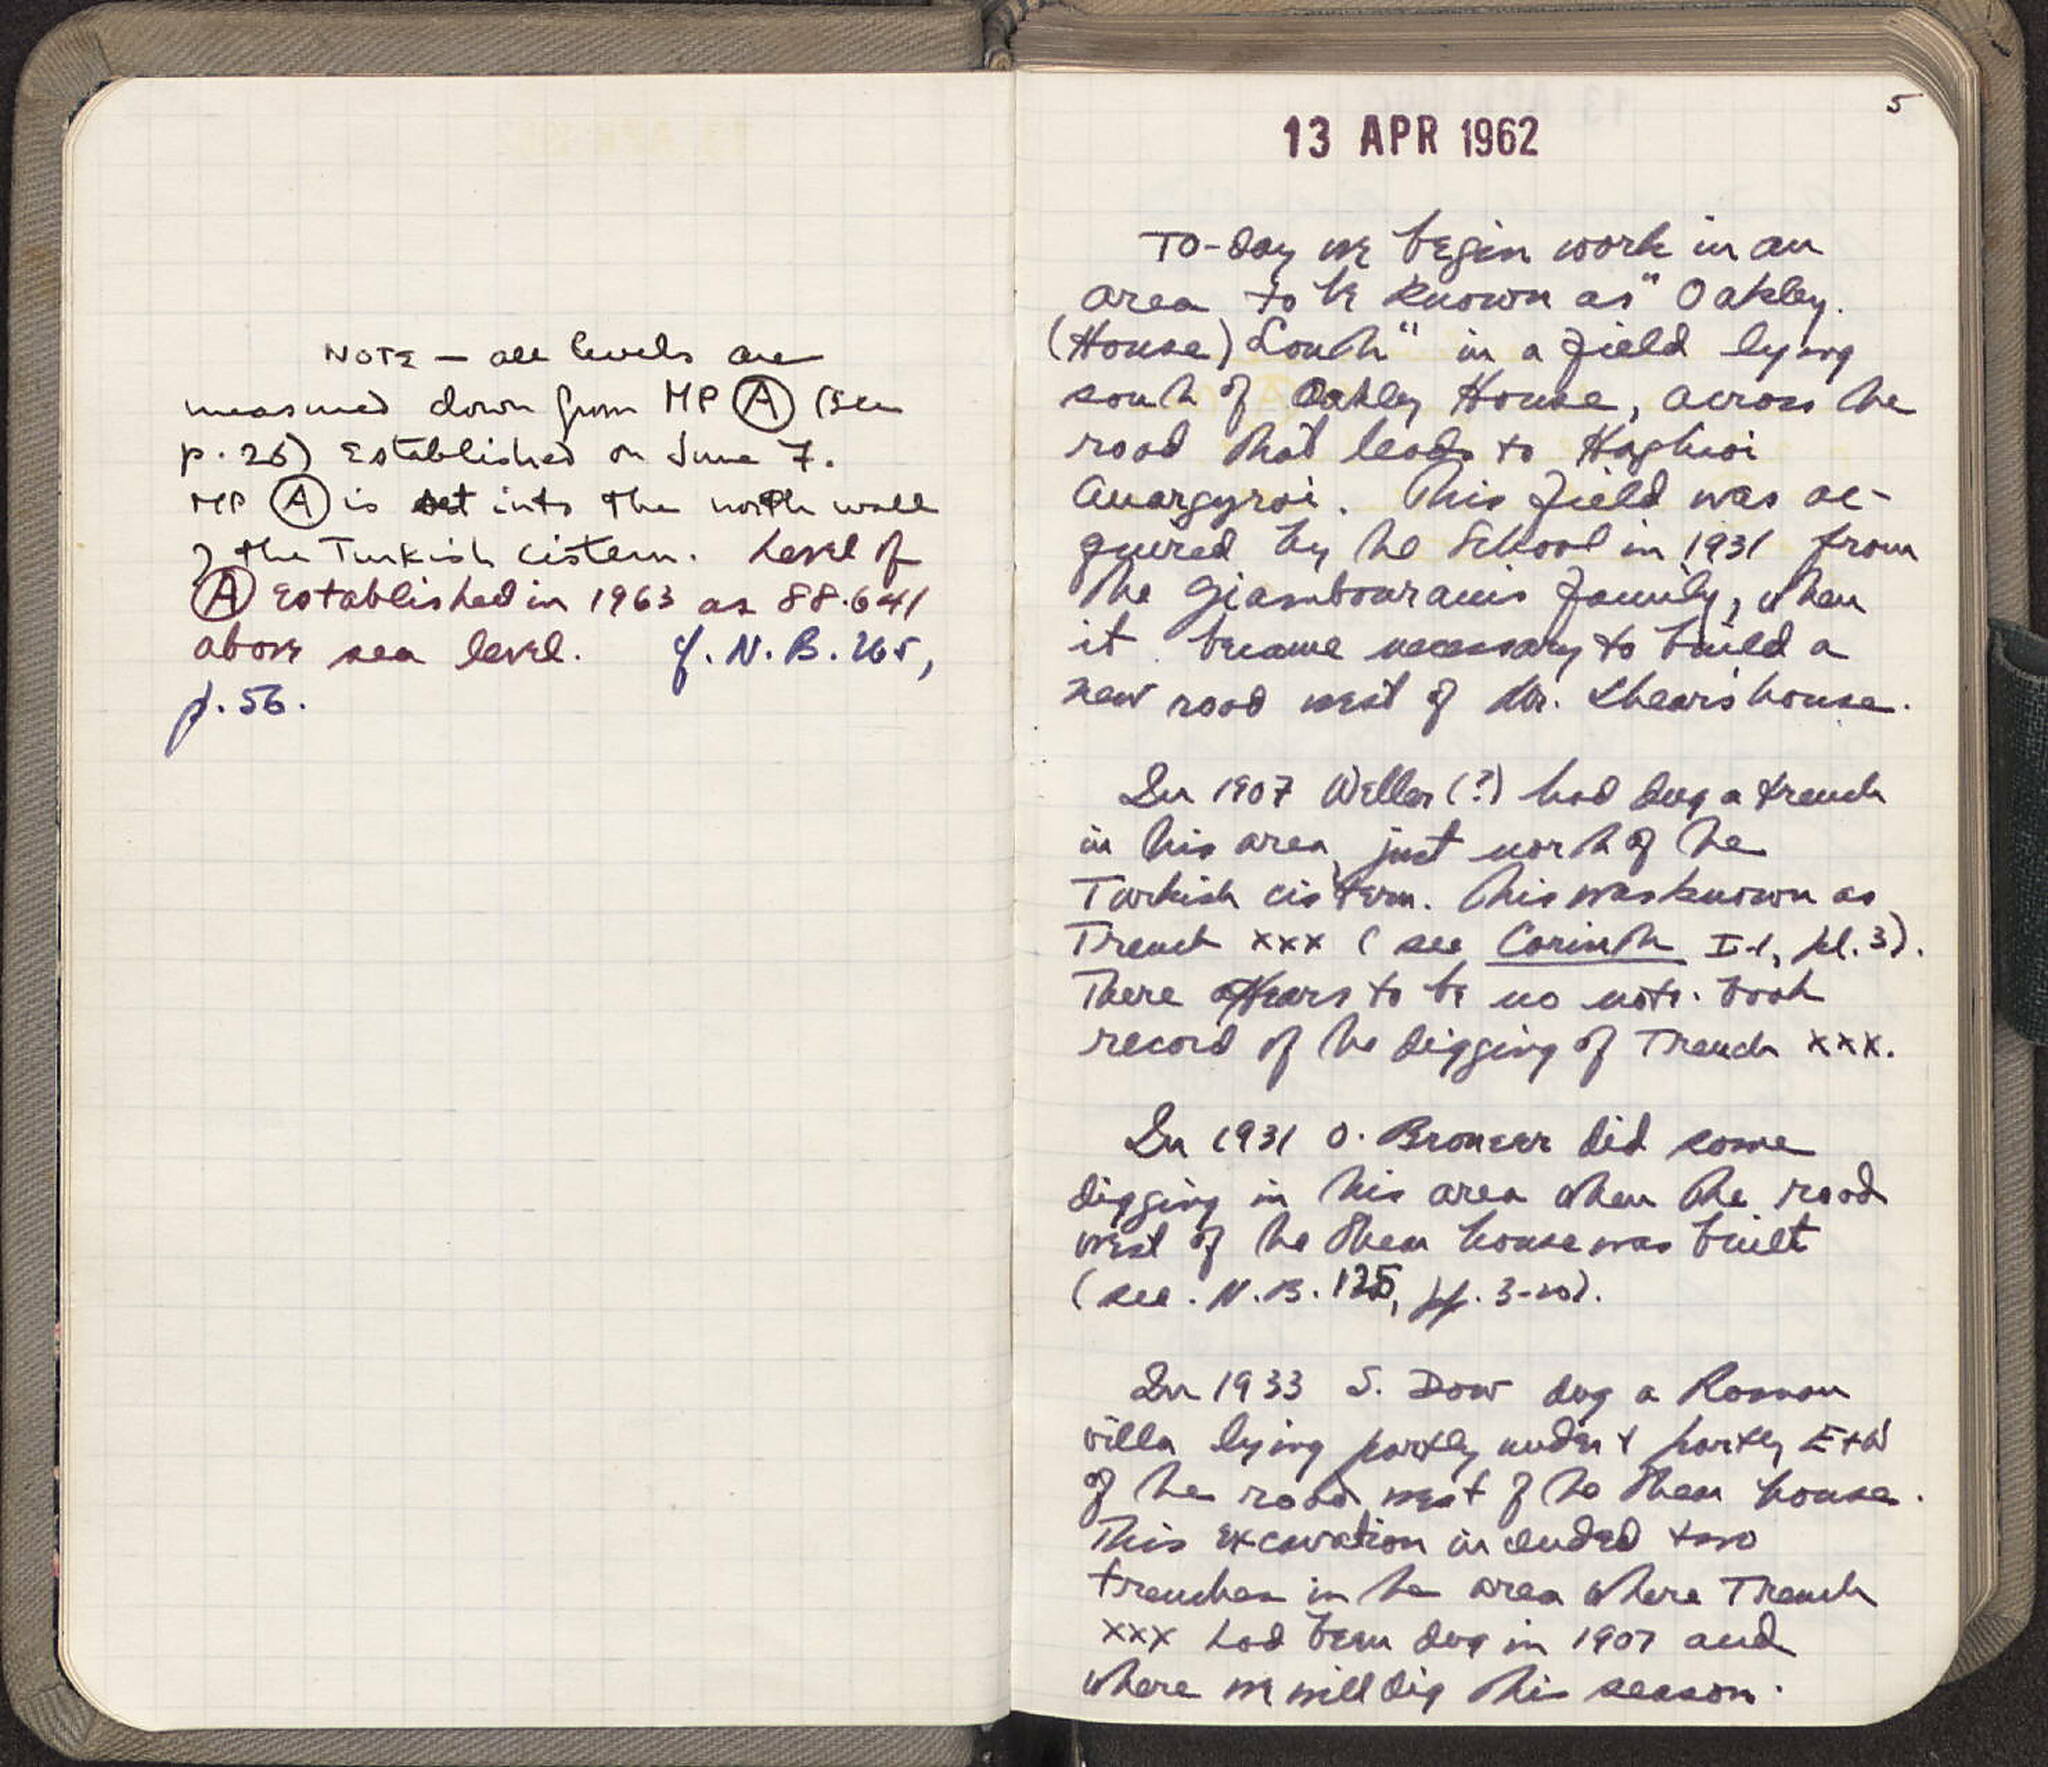 NOTE — all levels are
measured down from MP Ⓐ (see
p. 26) established on June 7.
MP Ⓐ is set into the north wall
of the Turkish cistern. Level of
Ⓐ established in 1963 as 88.641
above sea level. cf. N.B. 265,
p. 56.
5
13 APR 1962
To-day we begin work in an
area to be known as "Oakley
(House) South" in a field lying
south of Oakley House, across the
road that leads to Haghioi
Anargyroi. This field was ac-
quired by the School in 1931 from
the Giambouranis family, when
it became necessary to build a
new road west of Mr. Shear's house.
In 1907 Weller (?) had dug a trench
in this area, just north of the
Turkish cistern. This was known as
Trench xxx (see Corinth I-1, pl. 3).
There appears to be no note-book
record of the digging of Trench xxx.
In 1931 O. Broneer did some
digging in this area when the road
west of the Shear house was built
(see N.B. 125, pp. 3-20).
In 1933 S. Dow dug a Roman
villa lying partly under + partly E+W
of the road west of the Shear house.
This excavation included two
trenches in the area where Trench
xxx had been dug in 1907 and
where we will dig this season.